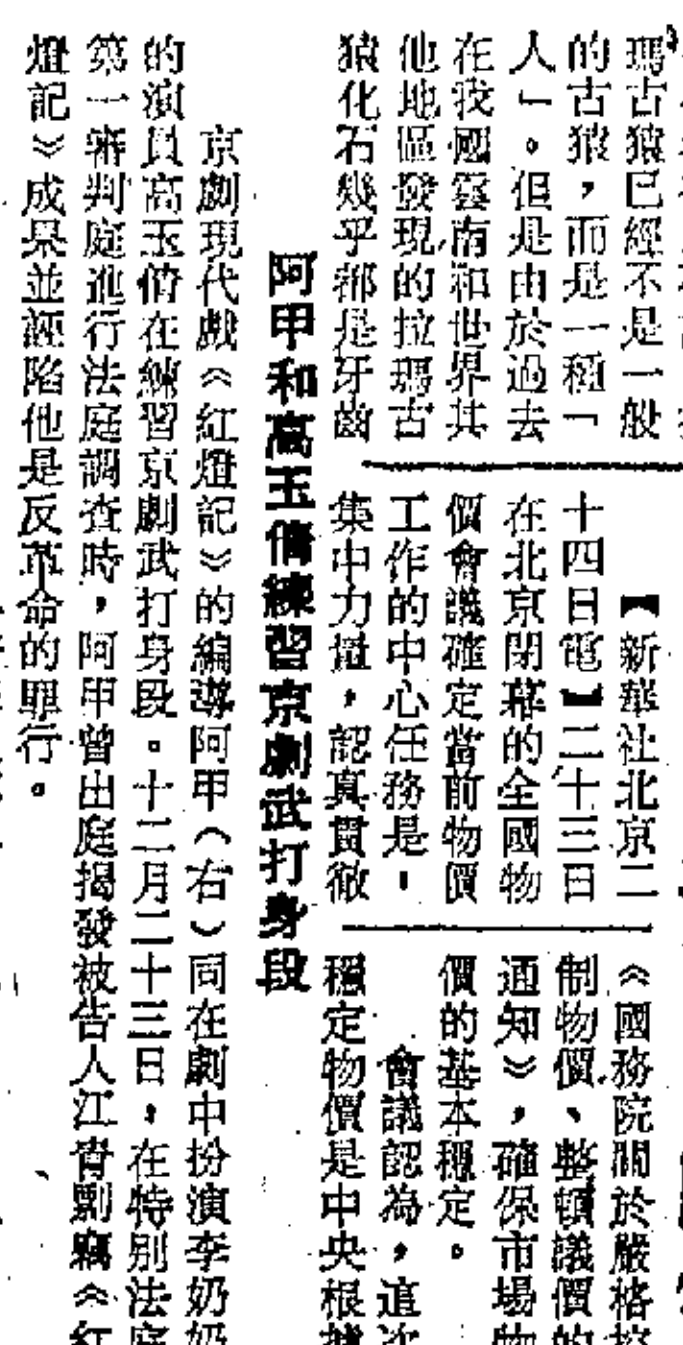 瑪古猿已經不是一般
的古猿，而是一種「
人」。但是由於過去
在我國雲南和世界其
他地區發現的拉瑪古
猿化石幾乎都是牙齒
【新華社北京二
十四日電】二十三日
在北京閉幕的全國物
價會議確定當前物價
工作的中心任務是，
集中力量，認真貫徹
《國務院關於嚴格控
制物價、整頓議價的
通知》，確保市場物
價的基本穩定。
會議認為，這次
穩定物價是中央根據
阿甲和高玉倩練習京劇武打身段
京劇現代戲《紅燈記》的編導阿甲（右）同在劇中扮演李奶奶
的演員高玉倩在練習京劇武打身段。十二月二十三日，在特別法庭
第一審判庭進行法庭調查時，阿甲曾出庭揭發被告人江青剽竊《紅
燈記》成果並誣陷他是反革命的罪行。